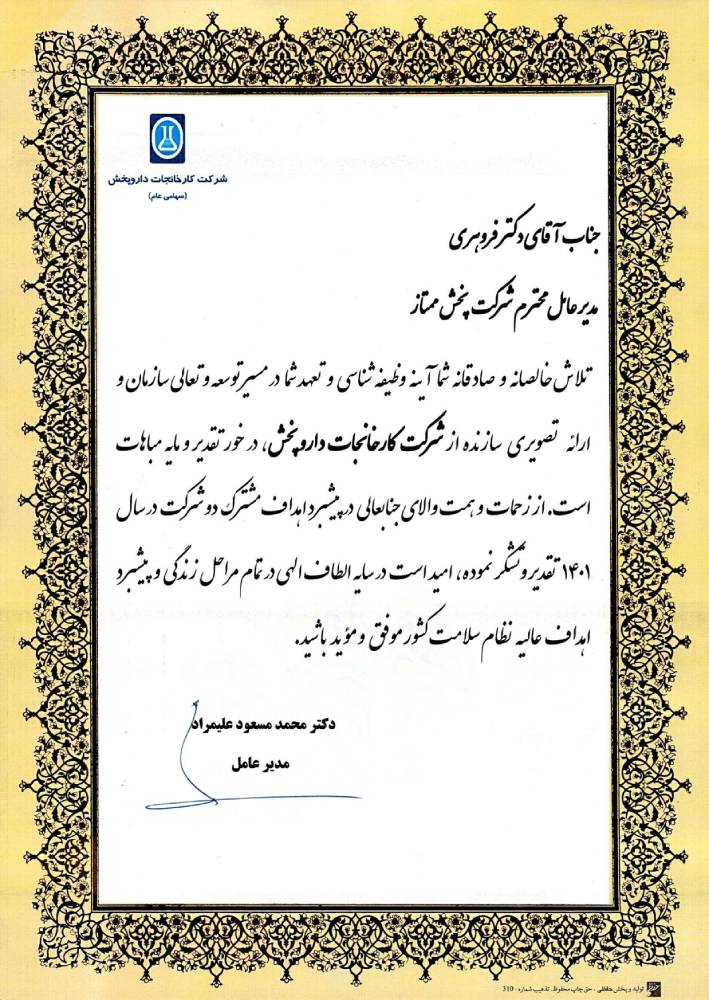 شرکت کارخانجات داروپخش
(سهامی عام)
جناب آقای دکتر فروهری
مدیرعامل محترم شرکت پخش ممتاز
تلاش خالصانه و صادقانه شما آینه وظیفه شناسی و تعهد شما در مسیر توسعه و تعالی سازمان و
ارائه تصویری سازنده از شرکت کارخانجات داروپخش، در خور تقدیر و مایه مباهات
است. از زحمات و همت والای جنابعالی در پیشبرد اهداف مشترک دو شرکت در سال
۱۴۰۱ تقدیر و تشکر نموده، امید است در سایه الطاف الهی در تمام مراحل زندگی و پیشبرد
اهداف عالیه نظام سلامت کشور موفق و مؤید باشید.
دکتر محمد مسعود علیمراد
مدیر عامل
تولید و پخش حافظی - حق چاپ محفوظ - تذهیب شماره: 310